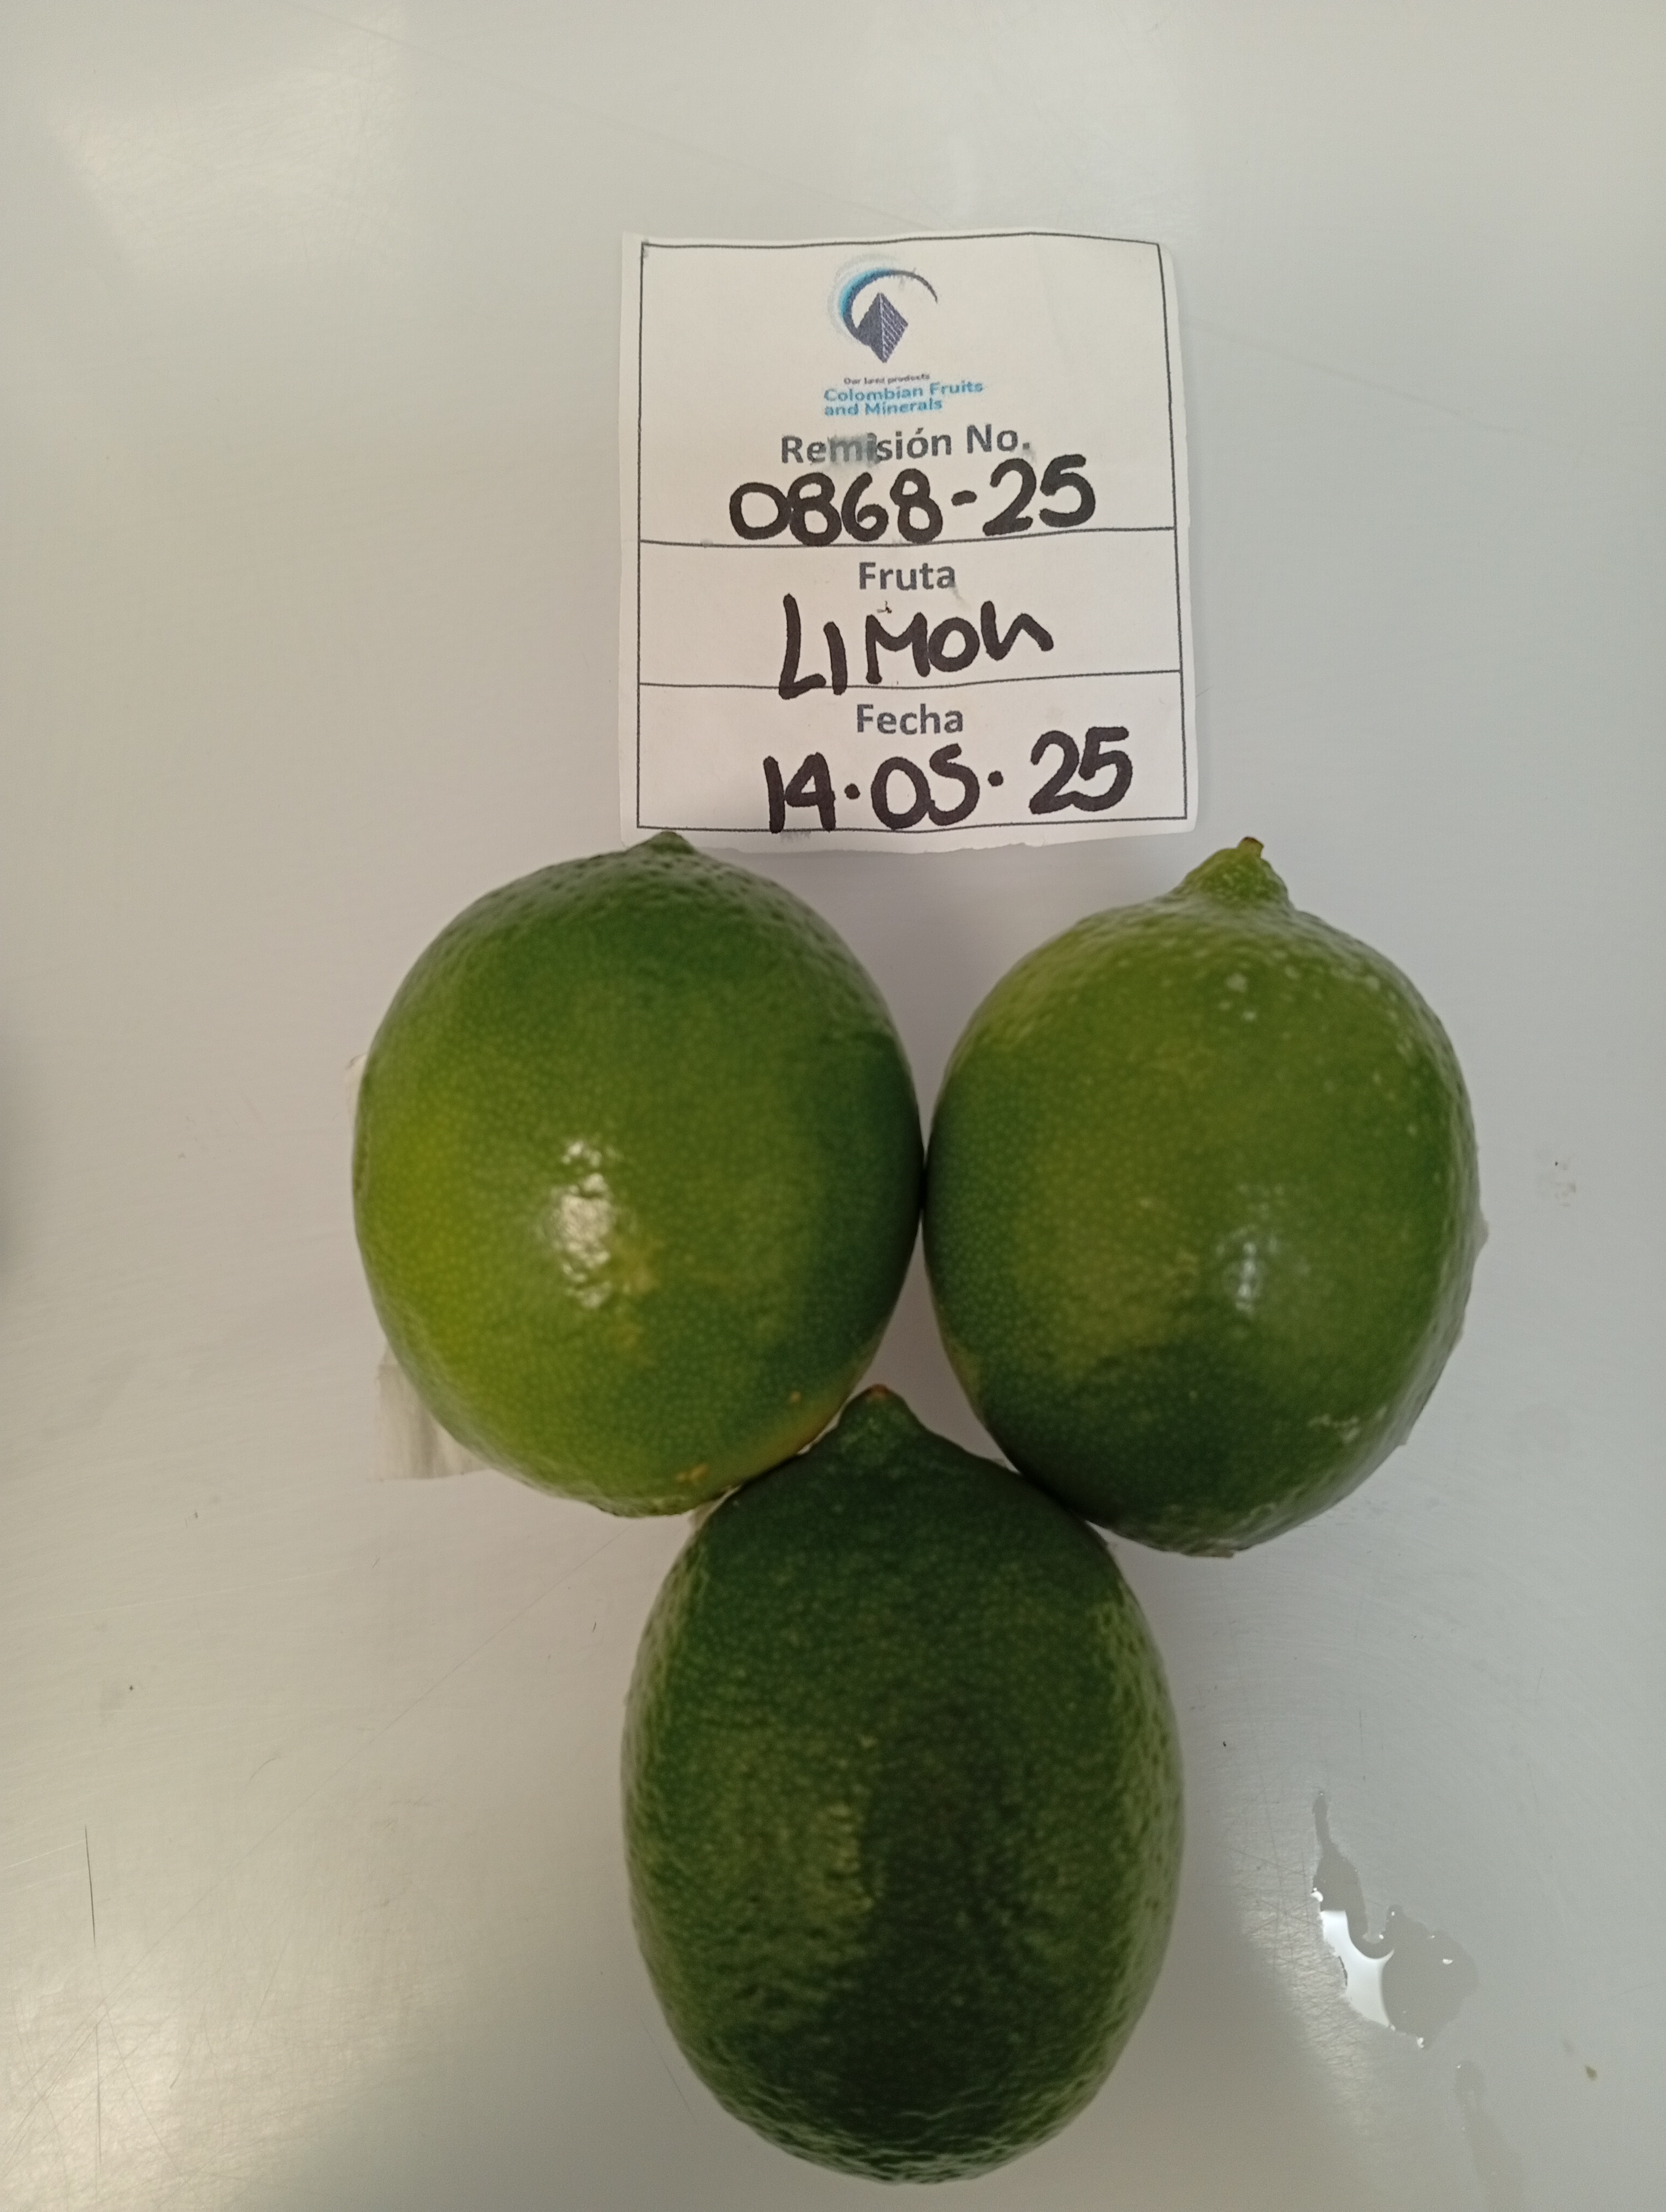 Our land products
Colombian Fruits
and Minerals
Remisión No.
0868-25
Fruta
LIMON
Fecha
14.05.25